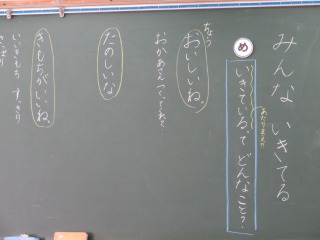 みんな いきてる
め
いきているって どんなこと？
あたりまえ!!
ちょう
おいしいね。
おかあさん つくってくれて
たのしいな
きもちがいいね。
いいきもち すっきり
さっぱり